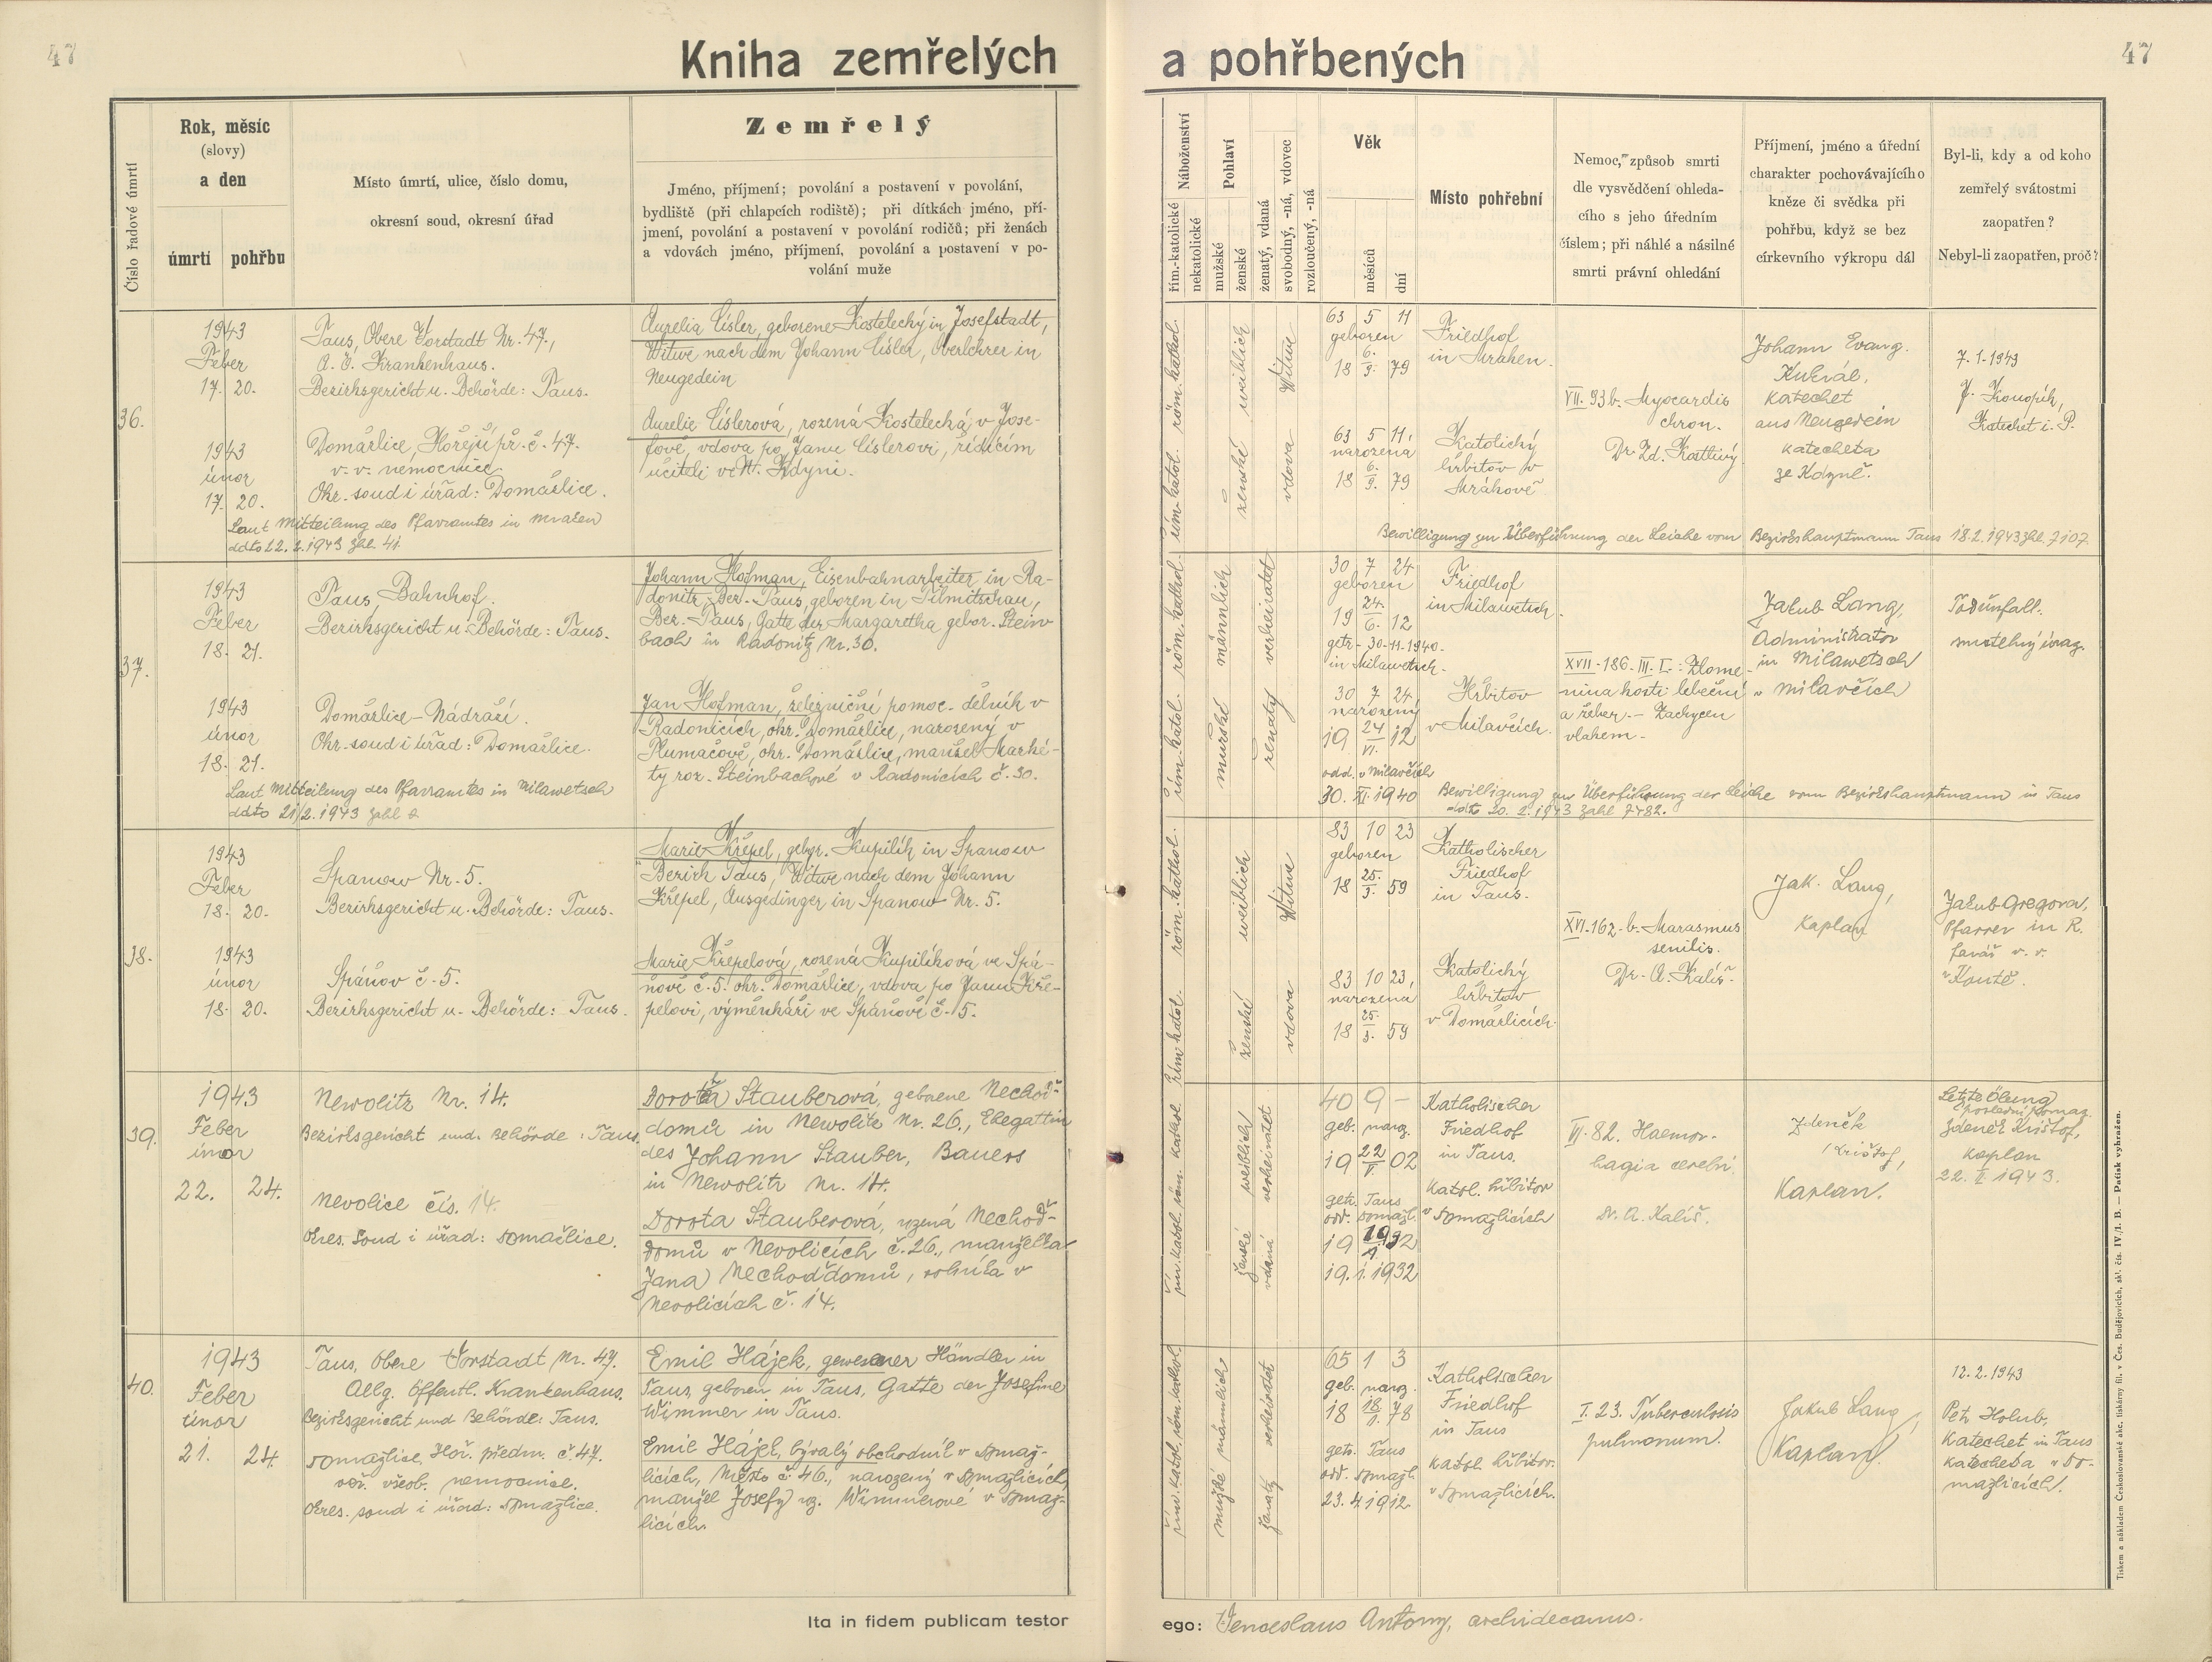 47
Kniha zemřelých
a pohřbených
47
Číslo řadové úmrtí
Rok, měsíc
(slovy)
a den
úmrtí
pohřbu
Místo úmrtí, ulice, číslo domu,
okresní soud, okresní úřad
Zemřelý
Jméno, příjmení; povolání a postavení v povolání,
bydliště (při chlapcích rodiště); při dítkách jméno, pří-
jmení, povolání a postavení v povolání rodičů; při ženách
a vdovách jméno, příjmení, povolání a postavení v po-
volání muže
Náboženství
řím.-katolické
nekatolické
Pohlaví
mužské
ženské
ženatý, vdaná
svobodný, -ná, vdovec
rozloučený, -ná
Věk
měsíců
dní
Místo pohřební
Nemoc, způsob smrti
dle vysvědčení ohleda-
cího s jeho úředním
číslem; při náhlé a násilné
smrti právní ohledání
Příjmení, jméno a úřední
charakter pochovávajícího
kněze či svědka při
pohřbu, když se bez
církevního výkropu dál
Byl-li, kdy a od koho
zemřelý svátostmi
zaopatřen?
Nebyl-li zaopatřen, proč?
36.
1943
Feber
17. 20.
Taus, Obere Vorstadt Nr. 47.,
A. Ö. Krankenhaus.
Bezirksgericht u. Behörde: Taus.
Aurelia Císler, geborene Kostelecký in Josefstadt,
Witwe nach dem Johann Císler, Oberlehrer in
Neugedein
1943
únor
17. 20.
Domažlice, Hořejší př. č. 47.
v. v. nemocnice
Okr. soud i úřad: Domažlice.
Aurelie Císlerová, rozená Kostelecká, v Jose-
fově, vdova po Janu Císlerovi, řídícím
učiteli v N. Kdyni.
Laut Mitteilung des Pfarramtes in Mraken
ddto 22. 2. 1943 Zhl. 41.
röm. kathol.
řím. katol.
weiblich
ženské
Witwe
vdova
63 5 11
geboren
6.
18 9. 79
63 5 11.
narozena
6.
18 9. 79
Friedhof
in Mraken.
Katolický
hřbitov v
Mrákově
VII. 93b. Myocardis
chron.
Dr. Zd. Kattivý.
Johann Evang.
Kukrál,
Katechet
aus Neugedein
katecheta
ze Kdyně.
7. 1. 1943
J. Konopík,
Katechet i. P.
Bewilligung zur Überführung der Leiche vom Bezirkshauptmann Taus 18.2.1943 Zhl. 7107.
37.
1943
Feber
18. 21.
Taus, Bahnhof.
Bezirksgericht u. Behörde: Taus.
Johann Hofman, Eisenbahnarbeiter in Ra-
donitz, Bez. Taus, geboren in Tilmitschau,
Bez. Taus, Gatte der Margaretha gebor. Stein
bach in Radonitz Nr. 30.
1943
únor
18. 21.
Domažlice - Nádraží.
Okr. soud i úřad: Domažlice.
Jan Hofman, železniční pomoc. dělník v
Radonicích, okr. Domažlice, narozený v
Tlumačově, okr. Domažlice, manžel Marké-
ty roz. Steinbachové v Radonicích č. 30.
Laut Mitteilung des Pfarramtes in Milawetsch
ddto 21/2. 1943 Zahl
röm. kathol.
řím. katol.
männlich
mužské
verheiratet
ženatý
30 7 24
geboren
24.
19 6. 12
getr. 30. 11. 1940.
in Milawetsch.
30 7 24.
narozený
24
19 VI. 12
odd. v Milavčích
30. XI. 1940
Friedhof
in Milawetsch.
Hřbitov
v Milavčích.
XVII. 186. III. I.: Zlome-
nina kosti lebeční
a žeber. - Zachycen
vlakem.
Jakub Lang,
Administrator
in Milawetsch
v Milavčích
Todunfall.
smrtelný úraz.
Bewilligung zur Überführung der Leiche vom Bezirkshauptmann in Taus
ddto 20. 2. 1943 Zahl 7482.
38.
1943
Feber
18. 20.
Spanow Nr. 5.
Bezirksgericht u. Behörde: Taus.
Marie Křepel, gebor. Kupilík in Spanow
Bezirk Taus, Witwe nach dem Johann
Křepel, Ausgedinger in Spanow Nr. 5.
1943
únor
18. 20.
Spáňov č. 5.
Bezirksgericht u. Behörde: Taus.
Marie Křepelová, rozená Kupilíková ve Spá-
ňově č. 5. okr. Domažlice, vdova po Janu Kře-
pelovi, výměnkáři ve Spáňově č. 5.
röm. kathol.
řím. katol.
weiblich
ženské
Witwe
vdova
83 10 23
geboren
25.
18 3. 59
83 10 23,
narozena
25.
18 3. 59
Katholischer
Friedhof
in Taus.
Katolický
hřbitov
v Domažlicích.
XVI. 162. b. Marasmus
senilis.
Dr. A. Kališ.
Jak. Lang,
Kaplan
Jakub Gregora,
Pfarrer in R.
farář v. v.
v Koutě.
39.
1943
Feber
únor
22. 24.
Newolitz Nr. 14.
Bezirksgericht und Behörde: Taus.
Nevolice čís. 14.
Okres. soud i úřad: Domažlice.
Dorota Stauberová, geborene Nechoď-
domů in Newolitz Nr. 26., Ehegattin
des Johann Stauber, Bauers
in Newolitz Nr. 14.
Dorota Stauberová, rozená Nechoď-
domů v Nevolicích č. 26., manželka
Jana Nechoďdomů, rolníka v
Nevolicích č. 14.
řím. katol. röm. kathol
ženské weiblich
vdaná verheiratet
40 9 -
geb. naroz.
22
19 V. 02
getr. Taus
odd. Domažl.
19 19 32
1.
19. 1. 1932
Katholischer
Friedhof
in Taus.
Katol. hřbitov
v Domažlicích
VI. 82. Haemor-
hagia cerebri.
Dr. A. Kališ.
Zdeněk
Krištof,
Kaplan.
Letzte Ölung
poslední pomaz.
Zdeněk Krištof,
kaplan
22. II. 1943.
40.
1943
Feber
únor
21. 24.
Taus, Obere Vorstadt Nr. 47.
Allg. öffentl. Krankenhaus.
Bezirksgericht und Behörde: Taus.
Domažlice, Hoř. předm. č. 47.
veř. všeob. nemocnice.
Okres. soud i úřad: Domažlice.
Emil Hájek, gewesener Händler in
Taus, geboren in Taus, Gatte der Josefine
Wimmer in Taus.
Emil Hájek, bývalý obchodník v Domaž-
licích, Město č. 46., narozený v Domažlicích,
manžel Josefy roz. Wimmerové v Domaž-
licích.
řím. katol. röm. kathol.
mužské männlich
ženatý verheiratet
65 1 3
geb. naroz.
18 18 78
1.
getr. Taus
odd. Domažl.
23. 4. 1912.
Katholischer
Friedhof
in Taus
Katol. hřbitov
v Domažlicích.
I. 23. Tuberculosis
pulmonum.
Jakub Lang,
Kaplan.
12. 2. 1943
Petr Holub,
Katechet in Taus
katecheta v Do-
mažlicích.
Ita in fidem publicam testor
ego: Venceslaus Antony, archidecanus.
Tiskem a nákladem Českoslovanské akc. tiskárny fil. v Čes. Budějovicích, skl. čís. IV./1. B. — Patisk vyhrazen.